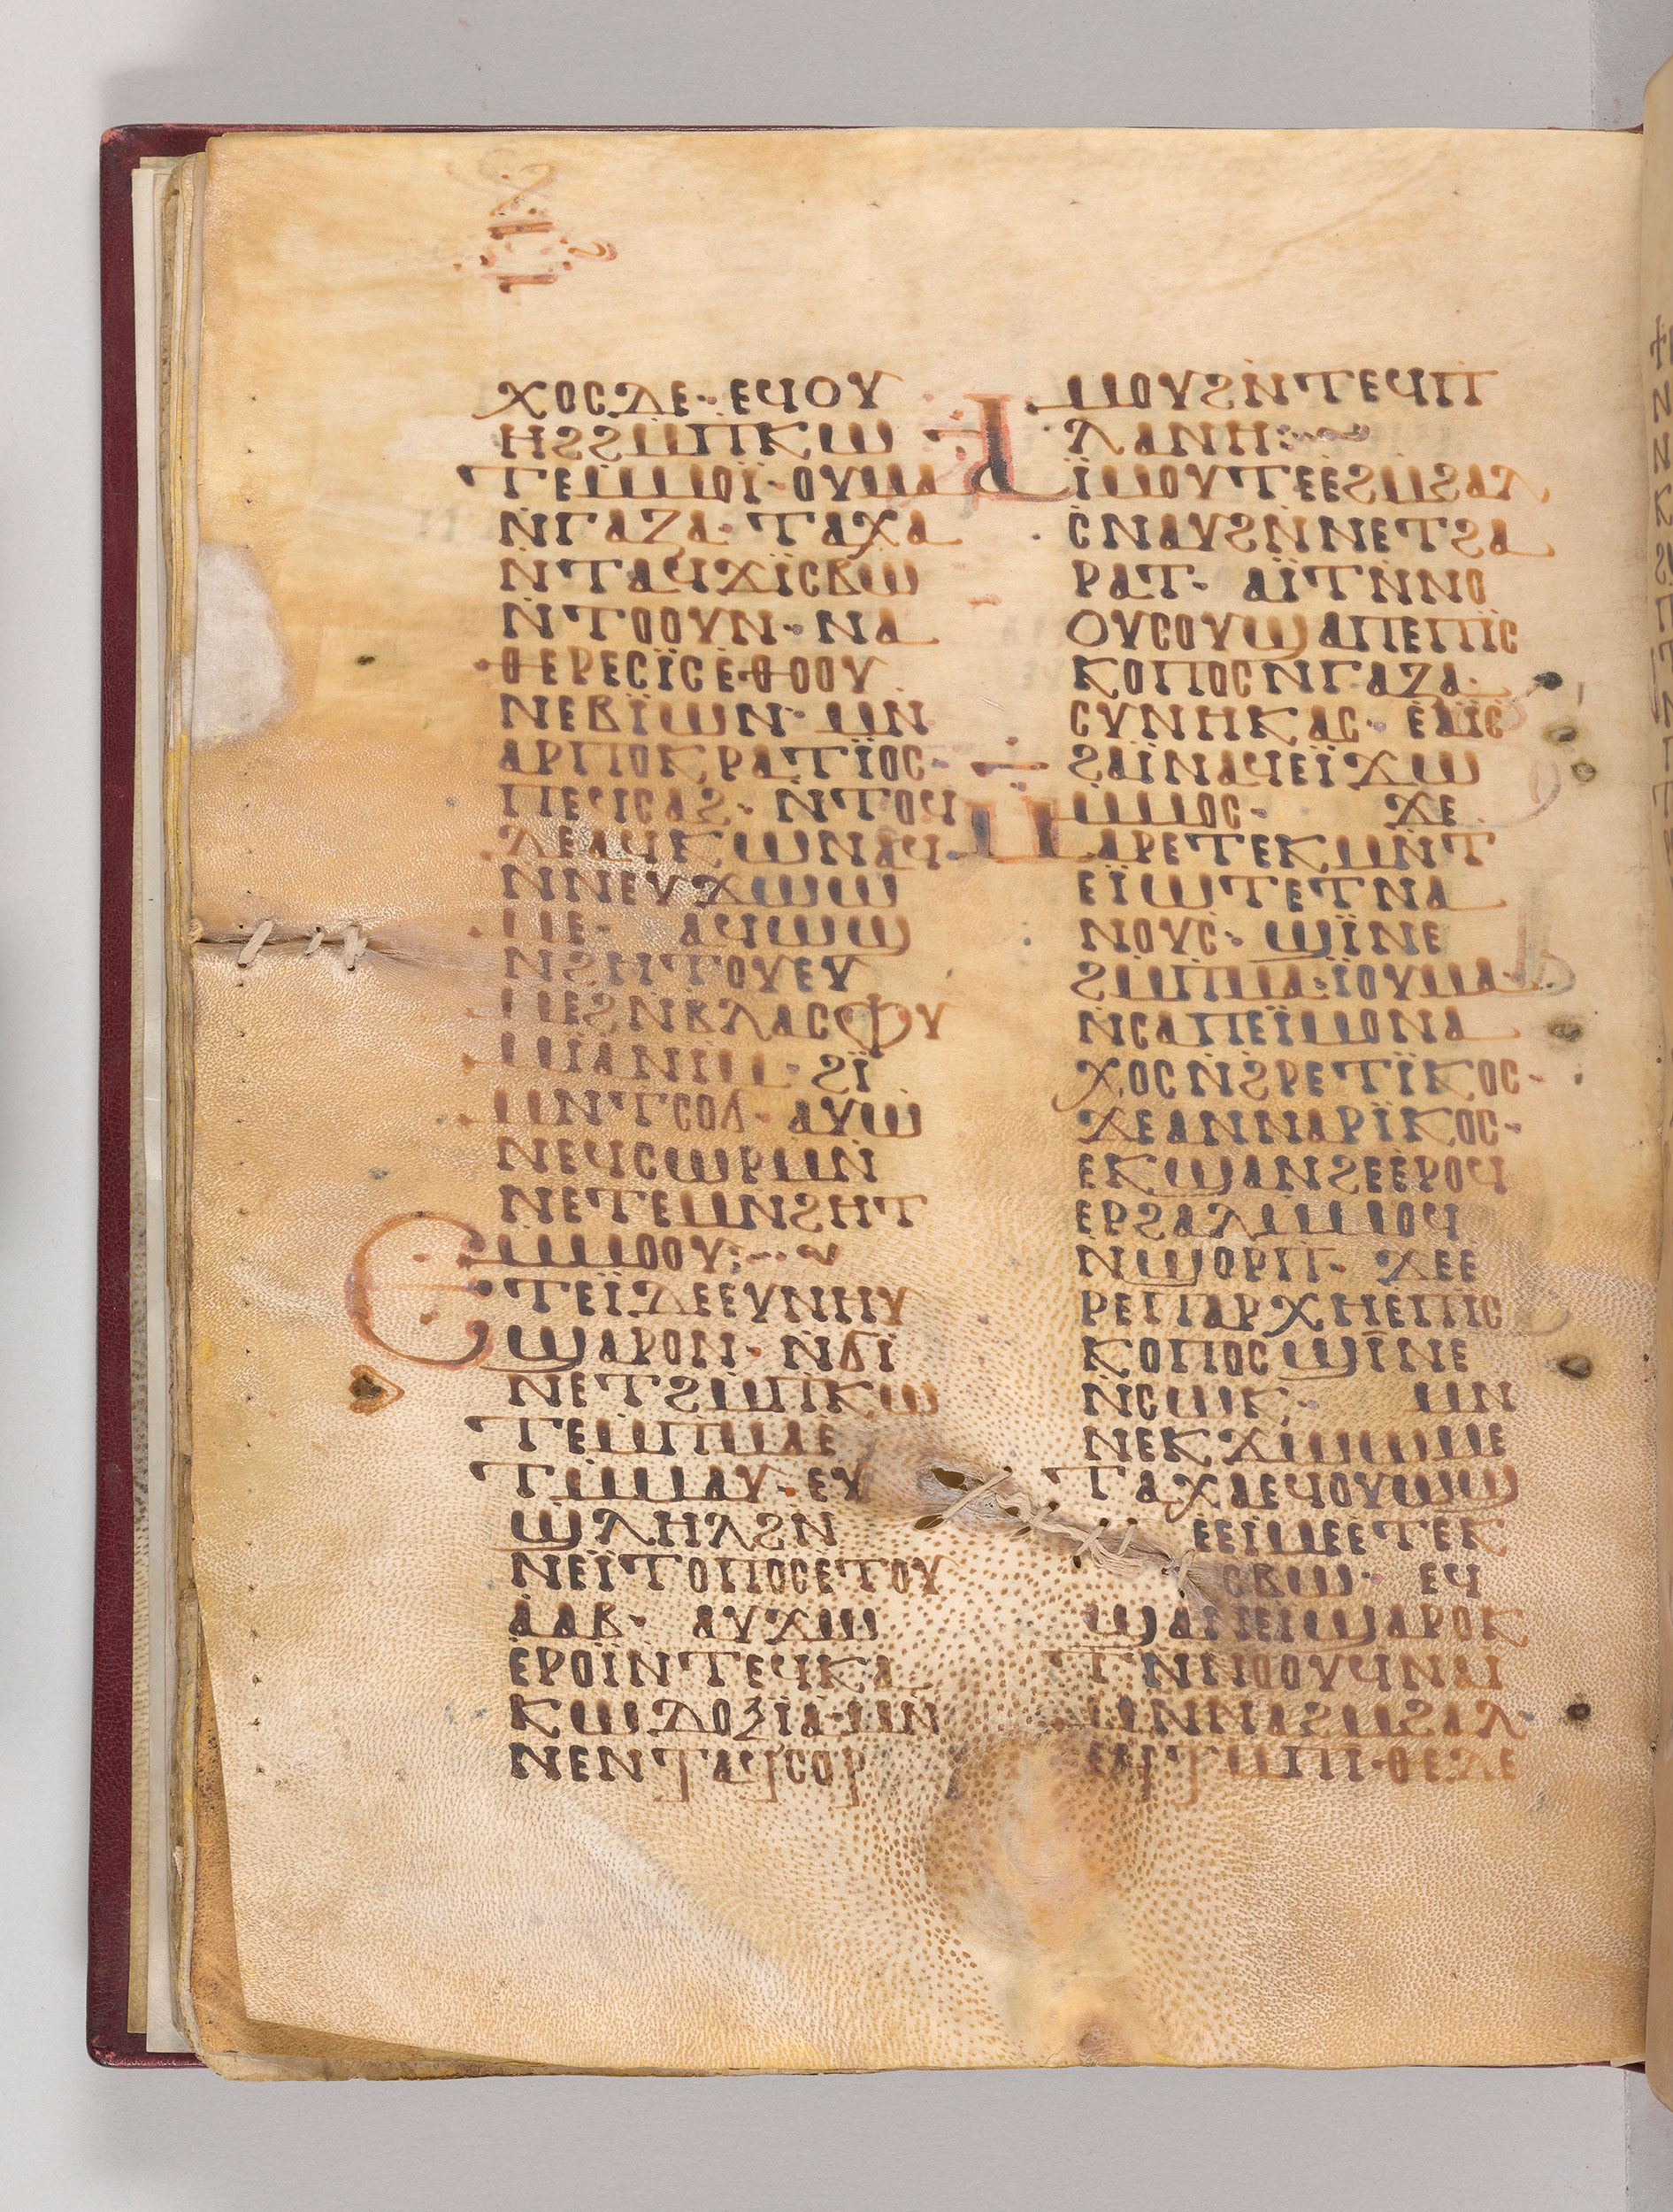 ⲭⲟⲥⲇⲉ· ⲉϥⲟⲩ
ⲏϩϩⲙ̄ⲡⲕⲱ
ⲧⲉⲙ̄ⲙⲟⲓ̈· ⲟⲩⲙⲁ
ⲛ̇ⲅⲁⲍⲁ· ⲧⲁⲭⲁ
ⲛ̇ⲧⲁϥϫⲓ̈ⲥⲃⲱ
ⲛ̇ⲧⲟⲟⲩⲛ· ⲛⲁ
ⲑⲉⲣⲉⲥⲓ̈ⲥⲉ̇ⲑⲟⲟⲩ
ⲛⲉⲃⲓ̈ⲱⲛ· ⲙⲛ̇
ⲁⲣⲡⲟⲕⲣⲁⲧⲓ̈ⲟⲥ·
ⲡⲉϥⲥⲁϩ· ⲛ̇ⲧⲟϥ
ⲇⲉⲁϥⲕⲱⲛⲁϥ
ⲛ̇ⲛⲉⲩϫⲱⲱ
ⲙⲉ· ⲁϥⲱϣ
ⲛϩⲏⲧⲟⲩⲉⲩ
ⲙⲉϩⲛ̇ⲃⲗⲁⲥⲫⲩ
ⲙⲓⲁⲛⲓⲙ· ϩⲓ̈
ⲙⲛⲧϭⲟⲗ· ⲁⲩⲱ
ⲛⲉϥⲥⲱⲣⲙⲛ̇
ⲛⲉⲧⲉⲙⲛϩⲏⲧ
ⲙ̄ⲙⲟⲟⲩ:
ⲉⲧⲉⲓ̈ⲇⲉⲉⲩⲛⲏⲩ
ϣⲁⲣⲟⲛ· ⲛ̇ϭⲓ
ⲛⲉⲧϩⲙ̄ⲡⲕⲱ
ⲧⲉⲙ̄ⲡⲙⲁⲉ̇
ⲧⲙ̄ⲙⲁⲩ· ⲉⲩ
ϣⲗⲏⲗϩⲛ̇
ⲛⲉⲓ̈ⲧⲟⲡⲟⲥⲉⲧⲟⲩ
ⲁ̇ⲁⲃ· ⲁⲩϫⲱ
ⲉⲣⲟⲓ̈ⲛ̇ⲧⲉϥⲕⲁ
ⲕⲱⲇⲟⲝⲓ̈ⲁ· ⲙⲛ̇
ⲛⲉⲛⲧⲁϥⲥⲟⲣ
ⲙⲟⲩϩⲛ̇ⲧⲉϥⲡ
ⲗⲁⲛⲏ:
ⲁⲓ̈ⲙⲟⲩⲧⲉⲉ̇ϩⲙϩⲁⲗ
ⲥ̇ⲛⲁⲩϩⲛ̇ⲛⲉⲧϩⲁ
ⲣⲁⲧ· ⲁⲓ̈ⲧⲛ̇ⲛⲟ
ⲟⲩⲥⲟⲩϣⲁⲡⲉⲡⲓ̈ⲥ
ⲕⲟⲡⲟⲥⲛ̇ⲅⲁⲍⲁ·
ⲥⲩⲛⲏⲕⲁⲥ· ⲉ̇ⲁⲓ̈ⲥ
ϩⲁⲓ̈ⲛⲁϥⲉⲓ̈ϫⲱ
ⲙ̄ⲙⲟⲥ· ϫⲉ
ⲙⲁⲣⲉⲧⲉⲕⲙⲛ̇ⲧ
ⲉⲓ̈ⲱⲧⲉⲧⲛⲁ
ⲛⲟⲩⲥ· ϣⲓ̈ⲛⲉ
ϩⲙ̄ⲡⲙⲁ·ⲓ̈ⲟⲩⲙⲁ
ⲛ̇ⲥⲁⲡⲉⲓ̈ⲙⲟⲛⲁ
ⲭⲟⲥⲛ̇ϩ̇ⲣⲉⲧⲓ̈ⲕⲟⲥ·
ϫⲉⲁⲛⲛⲁⲣⲓ̈ⲕⲟⲥ·
ⲉⲕϣⲁⲛϩⲉⲉ̇ⲣⲟϥ
ⲉⲣϩⲁⲗⲙ̄ⲙⲟϥ
ⲛ̇ϣⲟⲣⲡ· ϫⲉⲉ
ⲣⲉⲡⲁⲣⲭⲏⲉⲡⲓ̈ⲥ
ⲕⲟⲡⲟⲥϣⲓ̈ⲛⲉ
ⲛ̇ⲥⲱⲕ· ⲙⲛ
ⲛⲉⲕϫⲱⲱⲙⲉ
ⲧⲁⲭⲁⲉϥⲟⲩⲱϣ
ⲉⲉⲓⲙⲉⲉ̇ⲧⲉⲕ
ⲥⲃⲱ· ⲉϥ
ϣⲁⲛⲉⲓϣⲁⲣⲟⲕ
ⲧⲛ̇ⲛⲟⲟⲩϥⲛⲁⲓ
ⲙⲛ̇ⲛⲁϩⲙϩⲁⲗ·
ⲉⲛⲧⲙ̄ⲡⲓ·ⲑⲉⲇⲉ